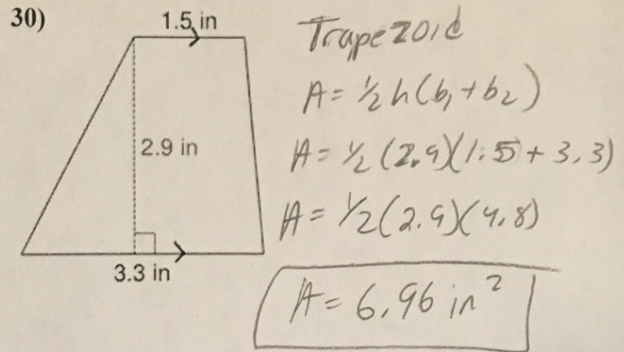 30)
1.5 in
2.9 in
3.3 in
Trapezoid
A = ½ h(b₁ + b₂)
A = ½ (2.9)(1.5 + 3.3)
A = ½ (2.9)(4.8)
A = 6.96 in²